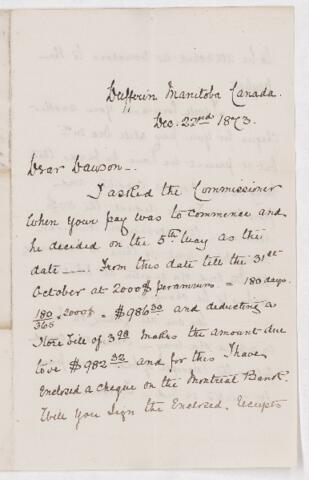 Dufferin Manitoba Canada.
Dec. 22nd 1873.
Dear Dawson_.
I asked the Commissioner
when your pay was to commence and
he decided on the 5th May as the
date ___. From this date till the 31st
October at 2000$ per annum = 180 days.
180/365 . 2000$ = $986 30 and deducting a
Store bill of 3 98 makes the amount due
to be $982 32 and for this I have
Enclosed a cheque on the Montreal Bank.
Will you Sign the Enclosed. Receipts